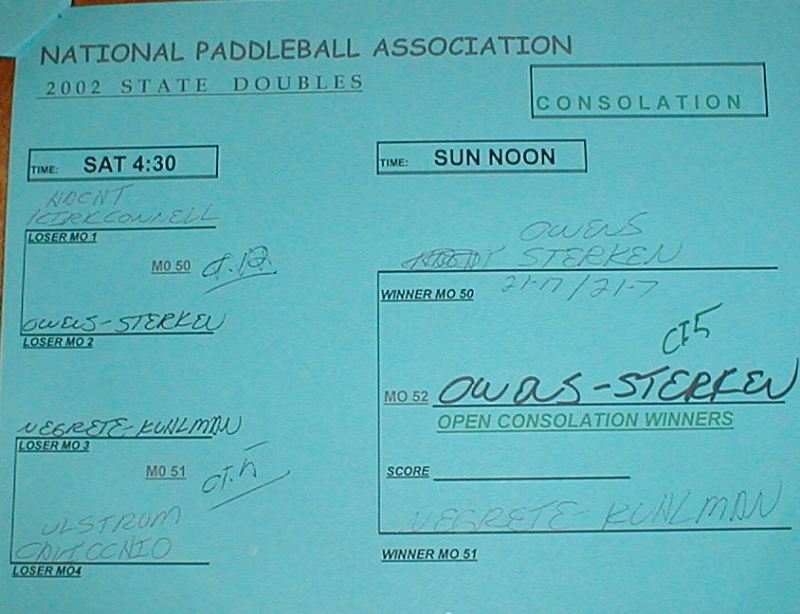 NATIONAL PADDLEBALL ASSOCIATION
2002 STATE DOUBLES
CONSOLATION
TIME: SAT 4:30
TIME: SUN NOON
KIRKCONNELL
LOSER MO 1
MO 50
OWENS-STERKEN
LOSER MO 2
NEGRETE-KUHLMAN
LOSER MO 3
MO 51
ULSTRUM
LOSER MO4
OWENS
STERKEN
WINNER MO 50
21-17/21-7
CT5
MO 52 OWENS-STERKEN
OPEN CONSOLATION WINNERS
SCORE
NEGRETE-KUHLMAN
WINNER MO 51